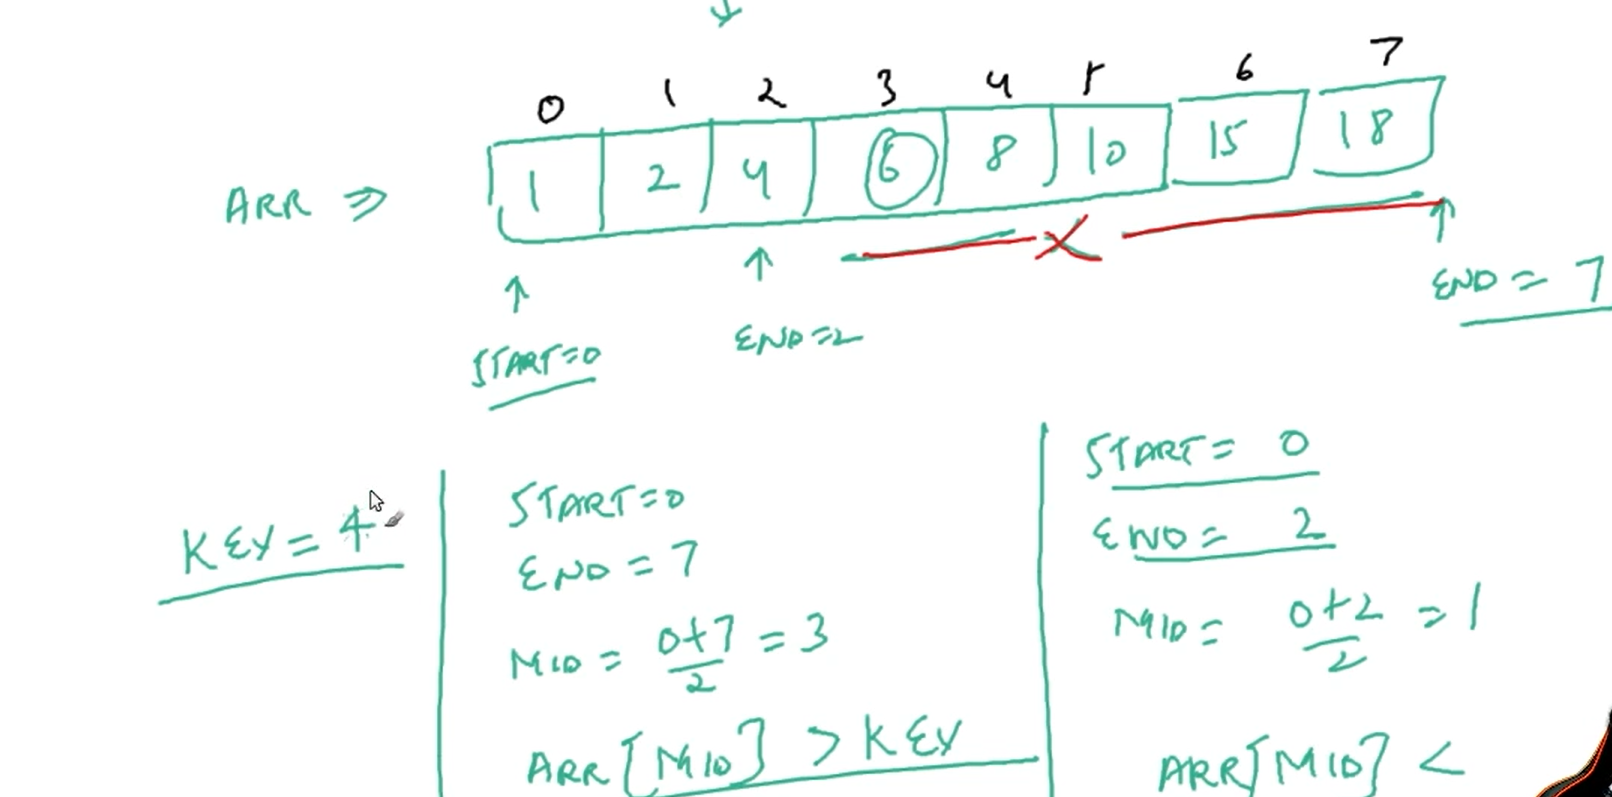 0 1 2 3 4 5 6 7
ARR ⇒ 1 2 4 6 8 10 15 18
START=0
END=2
END = 7
KEY = 4
START=0
END = 7
MID = 0+7/2 = 3
ARR[MID] > KEY
START= 0
END= 2
MID= 0+2/2 = 1
ARR[MID] <